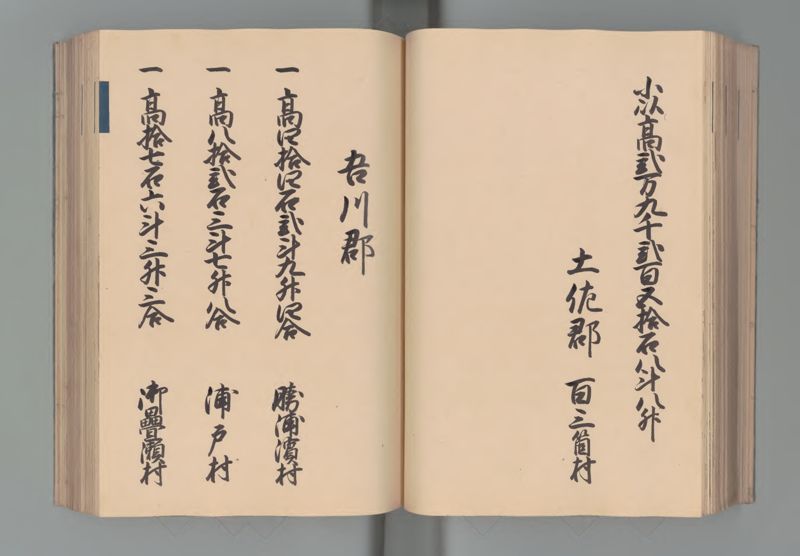 小以高弐万九千弐百五拾石八斗八升
土佐郡 百三箇村
吾川郡
一 高四拾四石弐斗九升四合 勝浦濱村
一 高八拾弐石三斗七升八合 浦戸村
一 高拾七石六斗三升三合 御疊瀬村